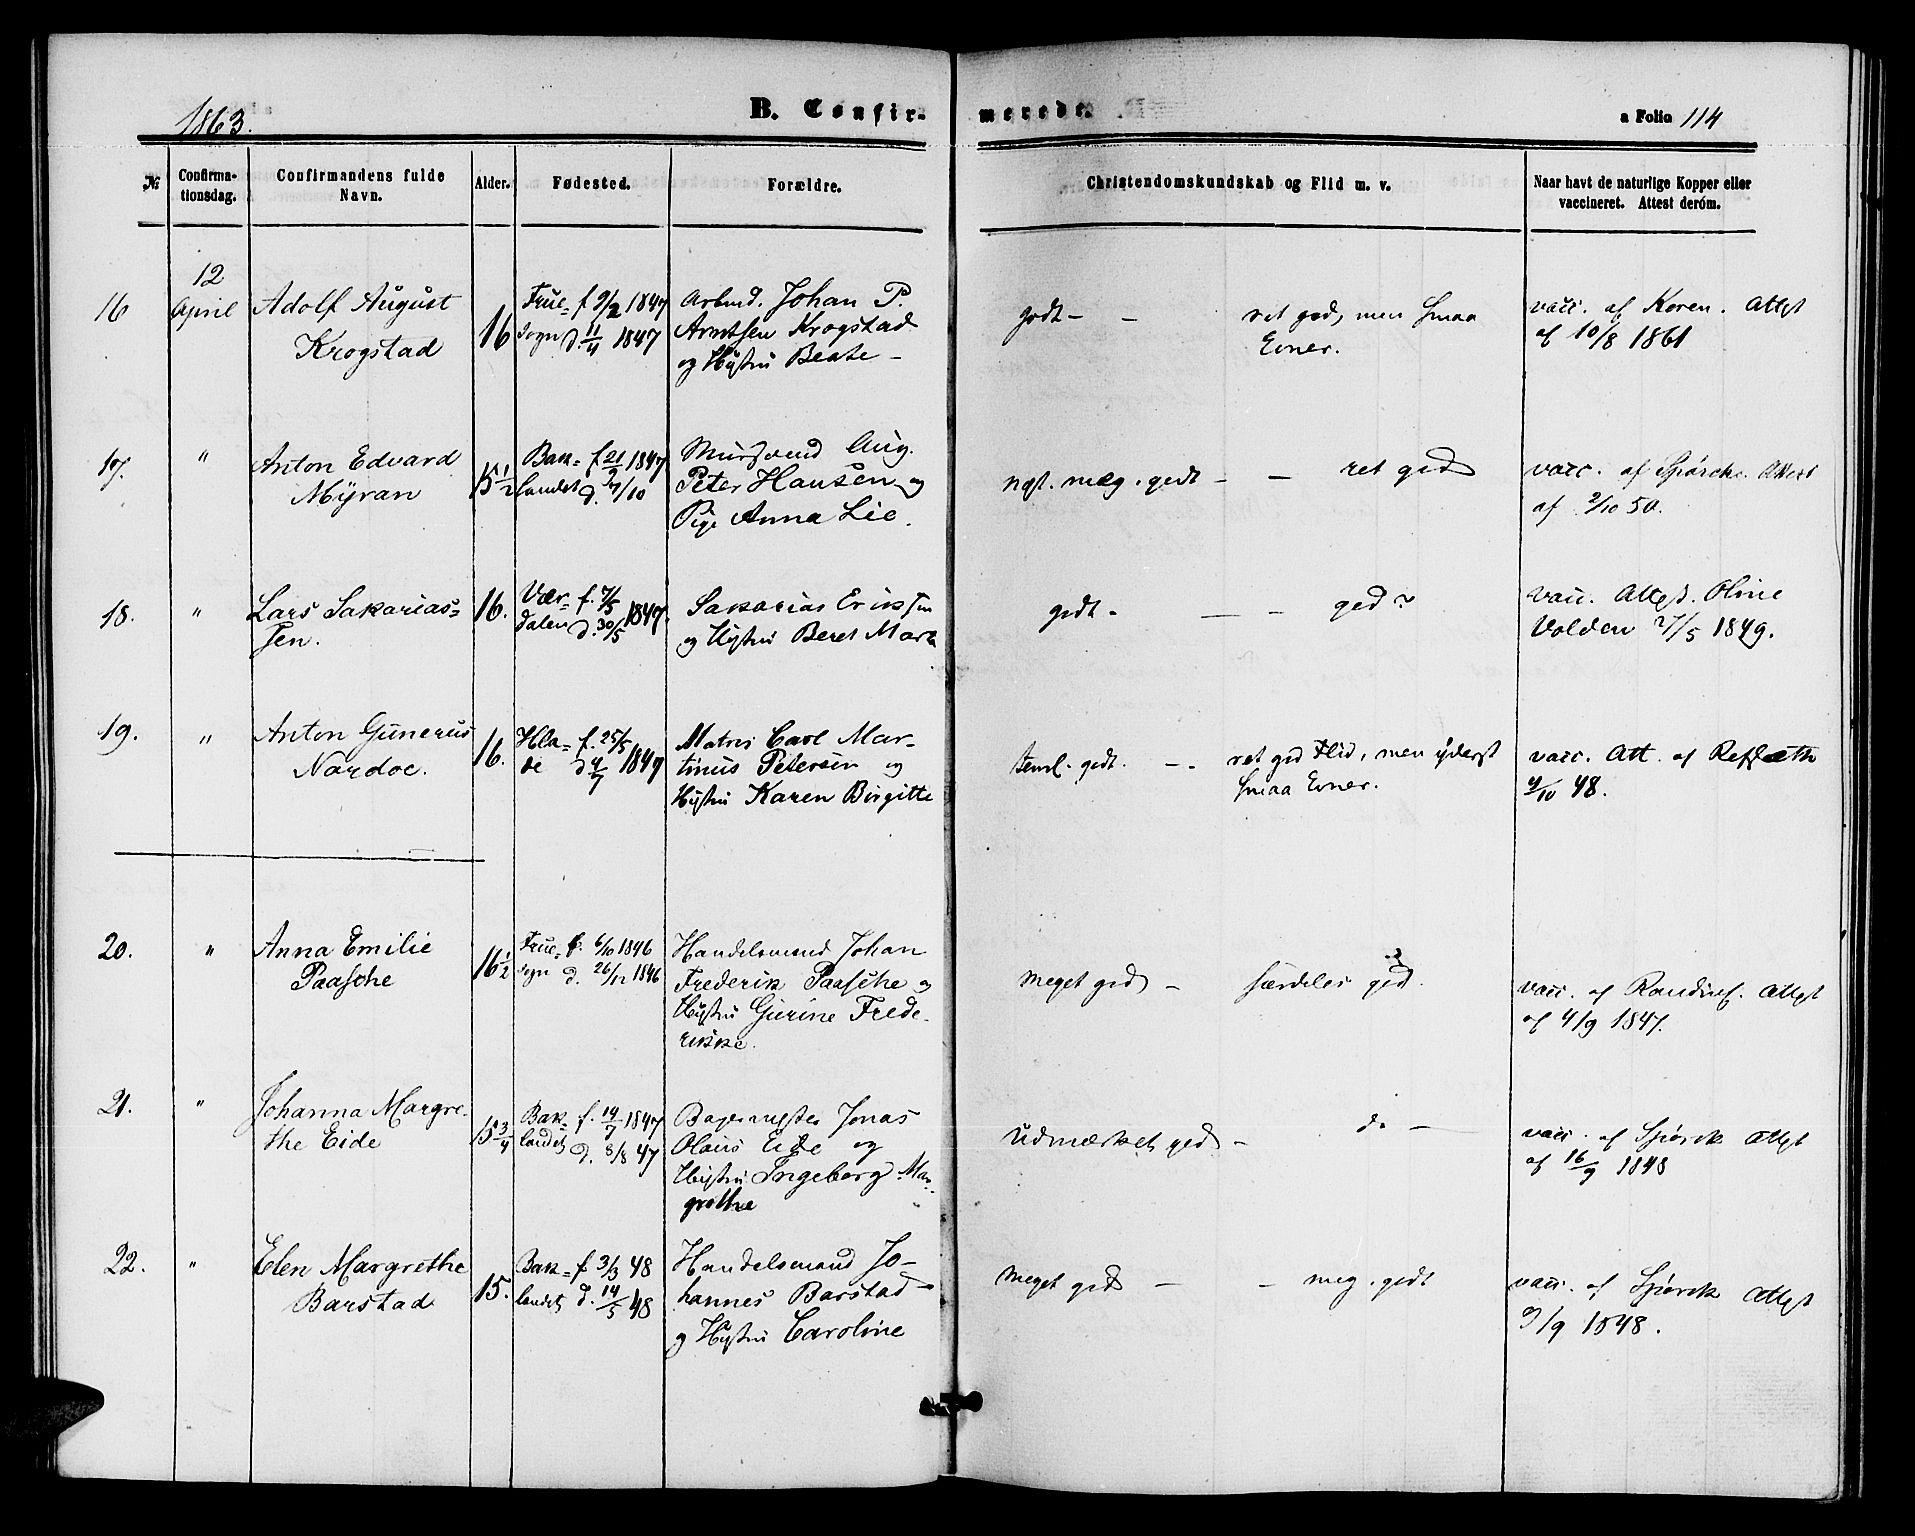 1863. B. Confir- merede. a Folio 114
№ Confirma-tionsdag. Confirmandens fulde Navn. Alder. Fødested. Forældre. Christendomskundskab og Flid m. v. Naar havt de naturlige Kopper eller vaccineret. Attest deróm.
16 12 April Adolf August Krogstad 16 Frue= sogn f 9/2 1847 d. 11/4 1847
Arbmd. Johan P.
Arntsen Krogstad
og Hustru Beate -
godt - - ret god, men smaa
Evner.
vacc. af Koren. Attest
af 10/8 1861
17. " Anton Edvard
Myran
15 1/2 Bak= landet f 21/2 1847 d. 7/10
Mursvend Aug.
Peter Hansen og
Pige Anna Lie.
ngt. meg. godt - - ret god
vacc. af Spørck. Attest
af 2/10 50.
18. " Lars Sakarias=
sen.
16. Vær= dalen f. 7/5 d. 30/5 1847.
Sakarias Eriksen
og Hustru Beret Marta
godt - - - god
vacc. Attest. Oline
Volden 27/5 1849.
19. " Anton Gunerus
Nardoe.
16. Hla= de f. 25/5 d 4/7 1847
Matros Carl Mar-
tinus Petersen og
Hustru Karen Birgitte
teml. godt. - - ret god Flid, men yderst
smaa Evner.
vacc. Att. af
4/10 48.
20. " Anna Emilie
Paasche
16 1/2 Frue= sogn f. 6/10 1846 d. 26/12 1846
Handelsmand Johan
Frederik Paasche og
Hustru Gurine Frede-
rikke.
meget god - særdeles god.
vacc. af Attest
af 4/9 1847.
21. " Johanna Margre-
the Eide
15 3/4 Bak- landet f. 14/7 1847 d. 8/8 47
Bagermester Jonas
Olaus Eide og
Hustru Ingeborg Mar-
grethe
udmærket god - do -
vacc. af Spørck Attest
af 16/9 1848
22. " Elen Margrethe
Barstad
15. Bak= landet f 3/3 48 d. 14/5 48
Handelsmand Jo-
hannes Barstad
og Hustru Caroline
meget god - - meg. godt
vacc. af Spørck Attest
9/9 1848.